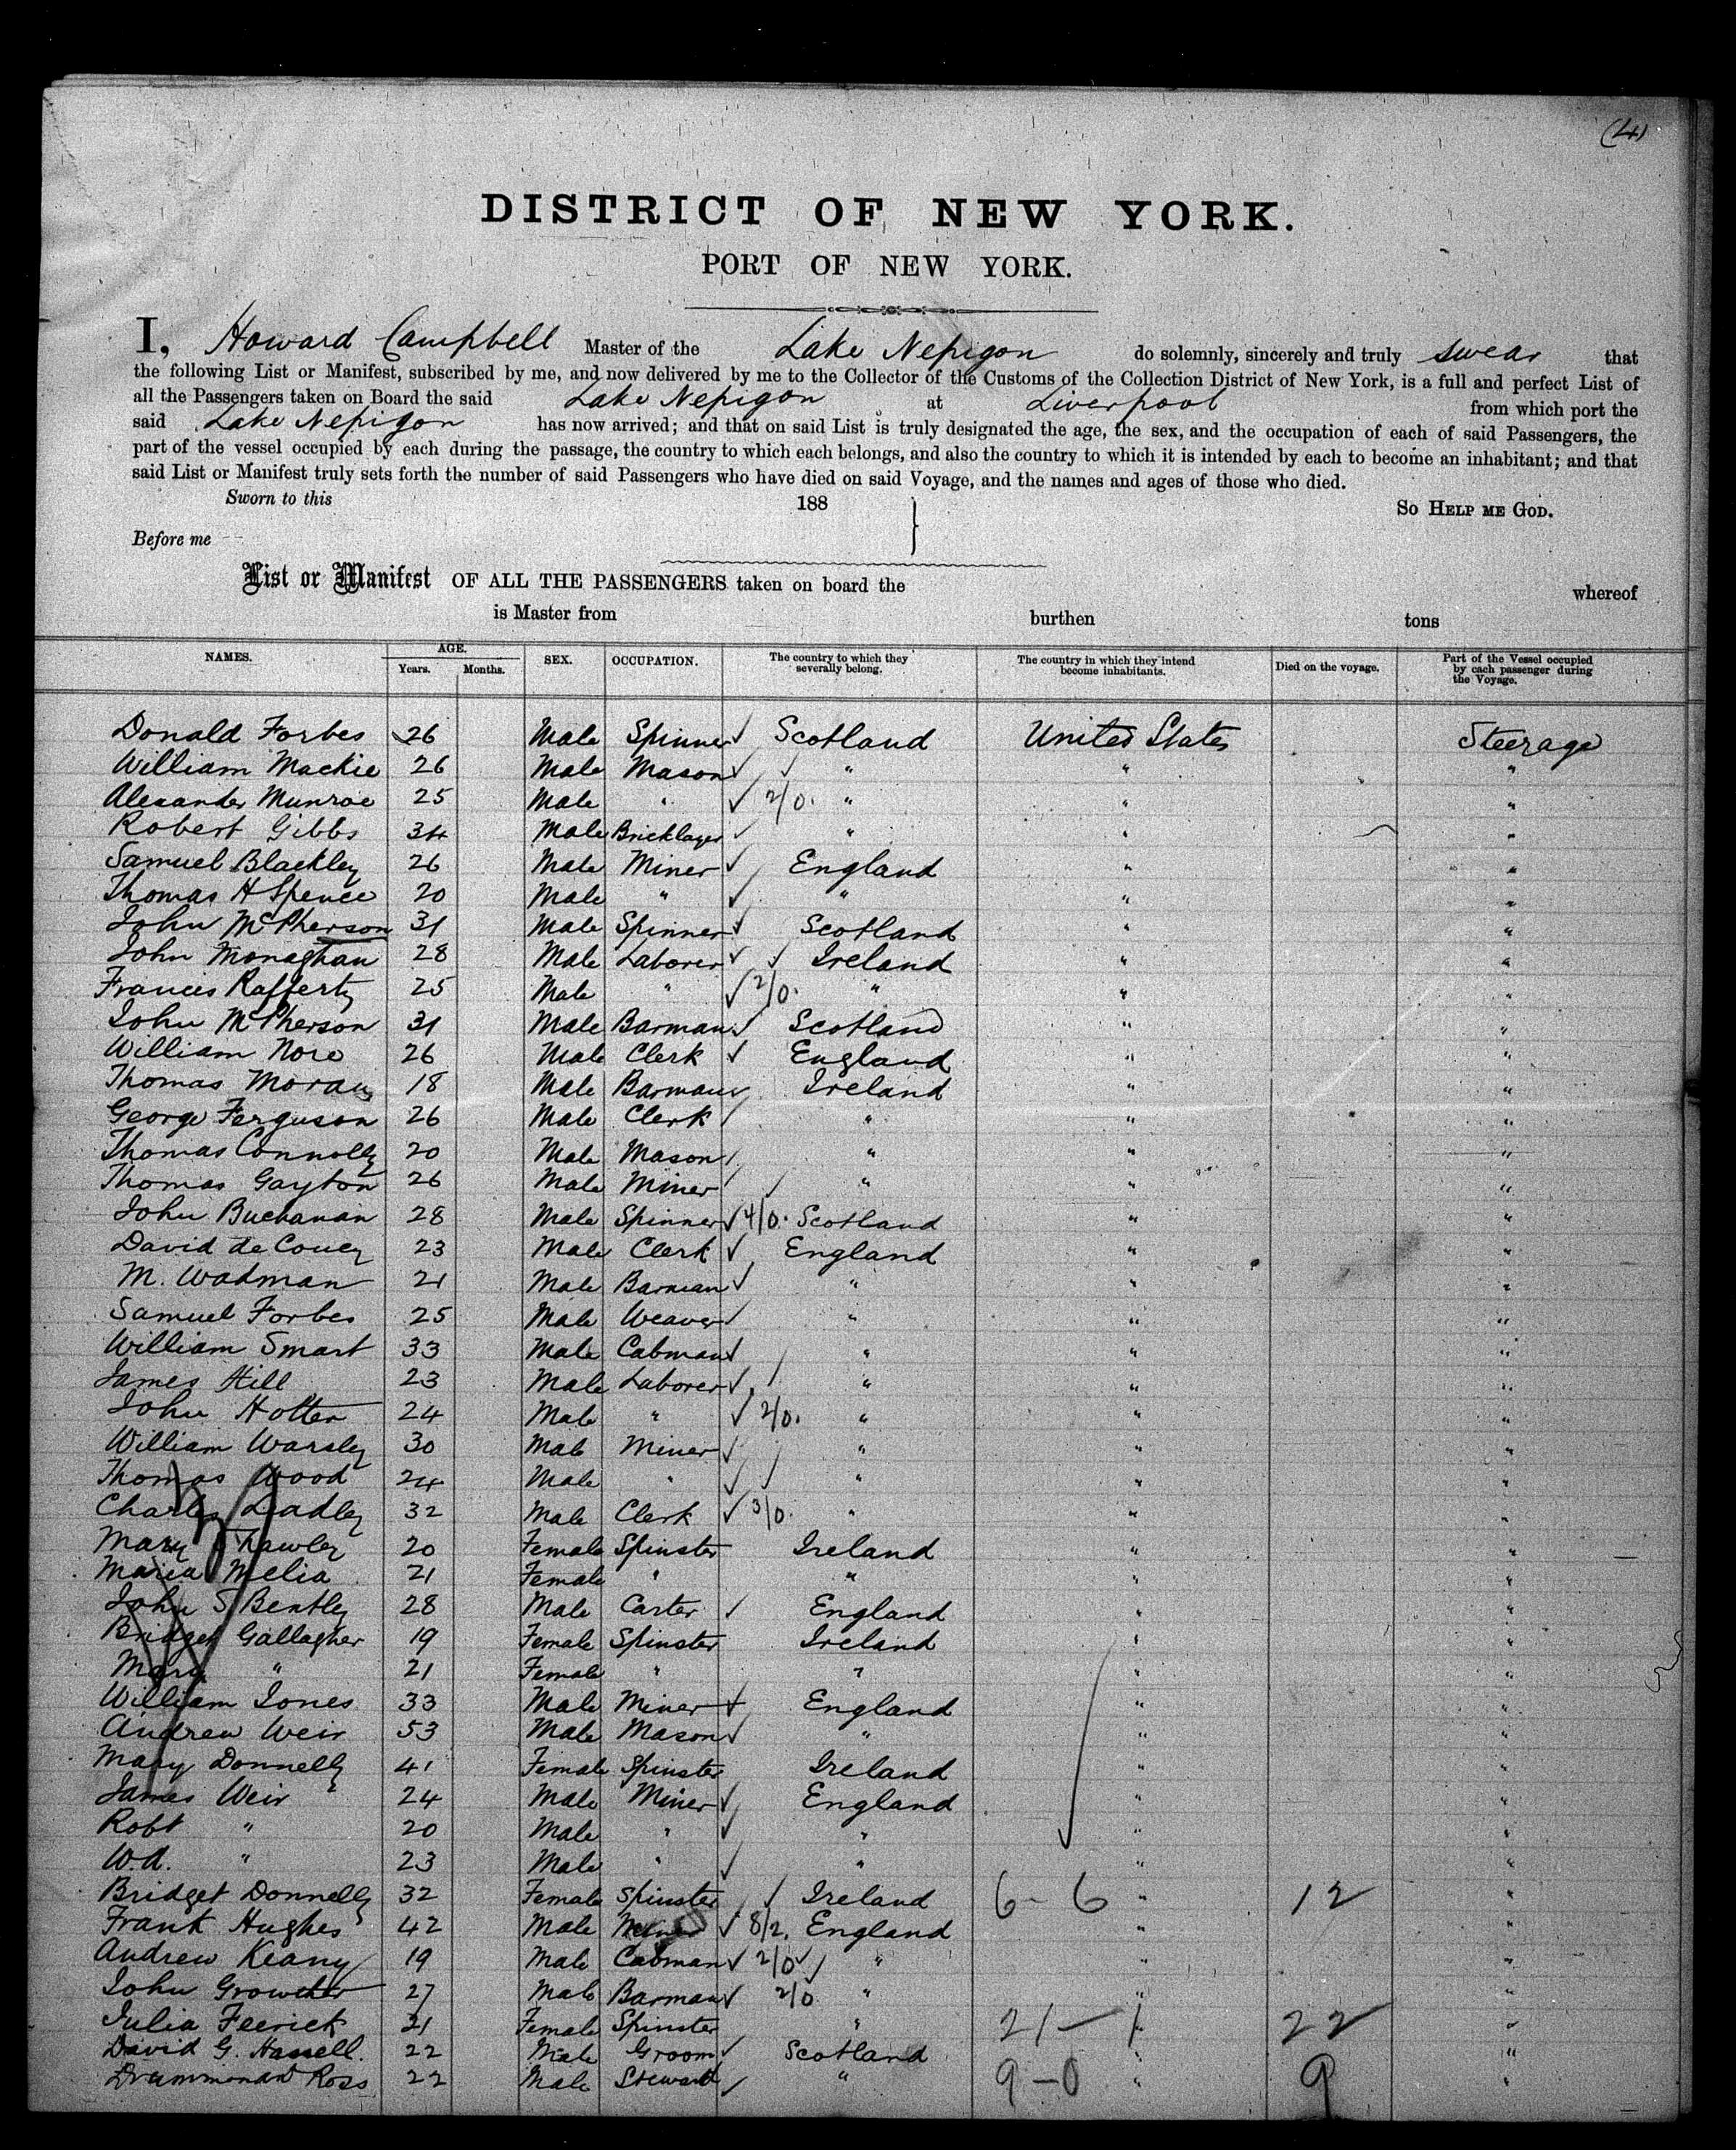 (4)
DISTRICT OF NEW YORK.
PORT OF NEW YORK.
I, Howard Campbell Master of the Lake Nepigon do solemnly, sincerely and truly swear that
the following List or Manifest, subscribed by me, and now delivered by me to the Collector of the Customs of the Collection District of New York, is a full and perfect List of
all the Passengers taken on Board the said Lake Nepigon at Liverpool from which port the
said Lake Nepigon has now arrived; and that on said List is truly designated the age, the sex, and the occupation of each of said Passengers, the
part of the vessel occupied by each during the passage, the country to which each belongs, and also the country to which it is intended by each to become an inhabitant; and that
said List or Manifest truly sets forth the number of said Passengers who have died on said Voyage, and the names and ages of those who died.
Sworn to this 188 So HELP ME GOD.
Before me
List or Manifest OF ALL THE PASSENGERS taken on board the whereof
is Master from burthen tons
NAMES. AGE. Years. Months. SEX. OCCUPATION. The country to which they severally belong. The country in which they intend become inhabitants. Died on the voyage. Part of the Vessel occupied by each passenger during the Voyage.
Donald Forbes 26 Male Spinner ✓ Scotland United States Steerage
William Mackie 26 Male Mason ✓ ✓ " " "
Alexander Munroe 25 Male " ✓ 2/0. " " "
Robert Gibbs 34 Male Bricklayer ✓ " " "
Samuel Blackley 26 Male Miner ✓ England " "
Thomas H Spence 20 Male " ✓ " " "
John McPherson 31 Male Spinner ✓ Scotland " "
John Monaghan 28 Male Laborer ✓ ✓ Ireland " "
Francis Rafferty 25 Male " ✓ 2/0. " " "
John McPherson 31 Male Barman ✓ Scotland " "
William Nore 26 Male Clerk ✓ England " "
Thomas Moran 18 Male Barman ✓ Ireland " "
George Ferguson 26 Male Clerk / " " "
Thomas Connolly 20 Male Mason / " " "
Thomas Gayton 26 Male Miner / ✓ " " "
John Buchanan 28 Male Spinner ✓ 4/0. Scotland " "
David de Coucy 23 Male Clerk ✓ England " "
M. Wadman 21 Male Barman ✓ " " "
Samuel Forbes 25 Male Weaver / " " "
William Smart 33 Male Cabman ✓ " " "
James Hill 23 Male Laborer ✓ / " " "
John Holten 24 Male " ✓ 2/0. " " "
William Warsley 30 Male Miner ✓ " " "
Thomas Wood 24 Male " ✓ / " " "
Charles Dadley 32 Male Clerk ✓ 3/0. " " "
Mary 20 Female Spinster Ireland " "
Maria Melia 21 Female " " " "
John S Bentley 28 Male Carter / England " "
Bridget Gallagher 19 Female Spinster Ireland " "
Mary " 21 Female " " " "
William Jones 33 Male Miner ✓ England " "
Andrew Weir 53 Male Mason ✓ " " "
Mary Donnelly 41 Female Spinster Ireland " "
James Weir 24 Male Miner ✓ England " "
Robt " 20 Male " ✓ " " "
W.A. " 23 Male " ✓ " " "
Bridget Donnelly 32 Female Spinster ✓ Ireland 6-6 " 12 "
Frank Hughes 42 Male Miner ✓ 8/2. England " "
Andrew Keany 19 Male Cabman ✓ 2/0 ✓ " " "
John Growther 27 Male Barman ✓ 2/0 " " "
Julia Feerick 21 Female Spinster " 21-1 22 "
David G. Hassell. 22 Male Groom ✓ Scotland " "
Drummond Ross 22 Male Steward ✓ " 9-0 " 9 "